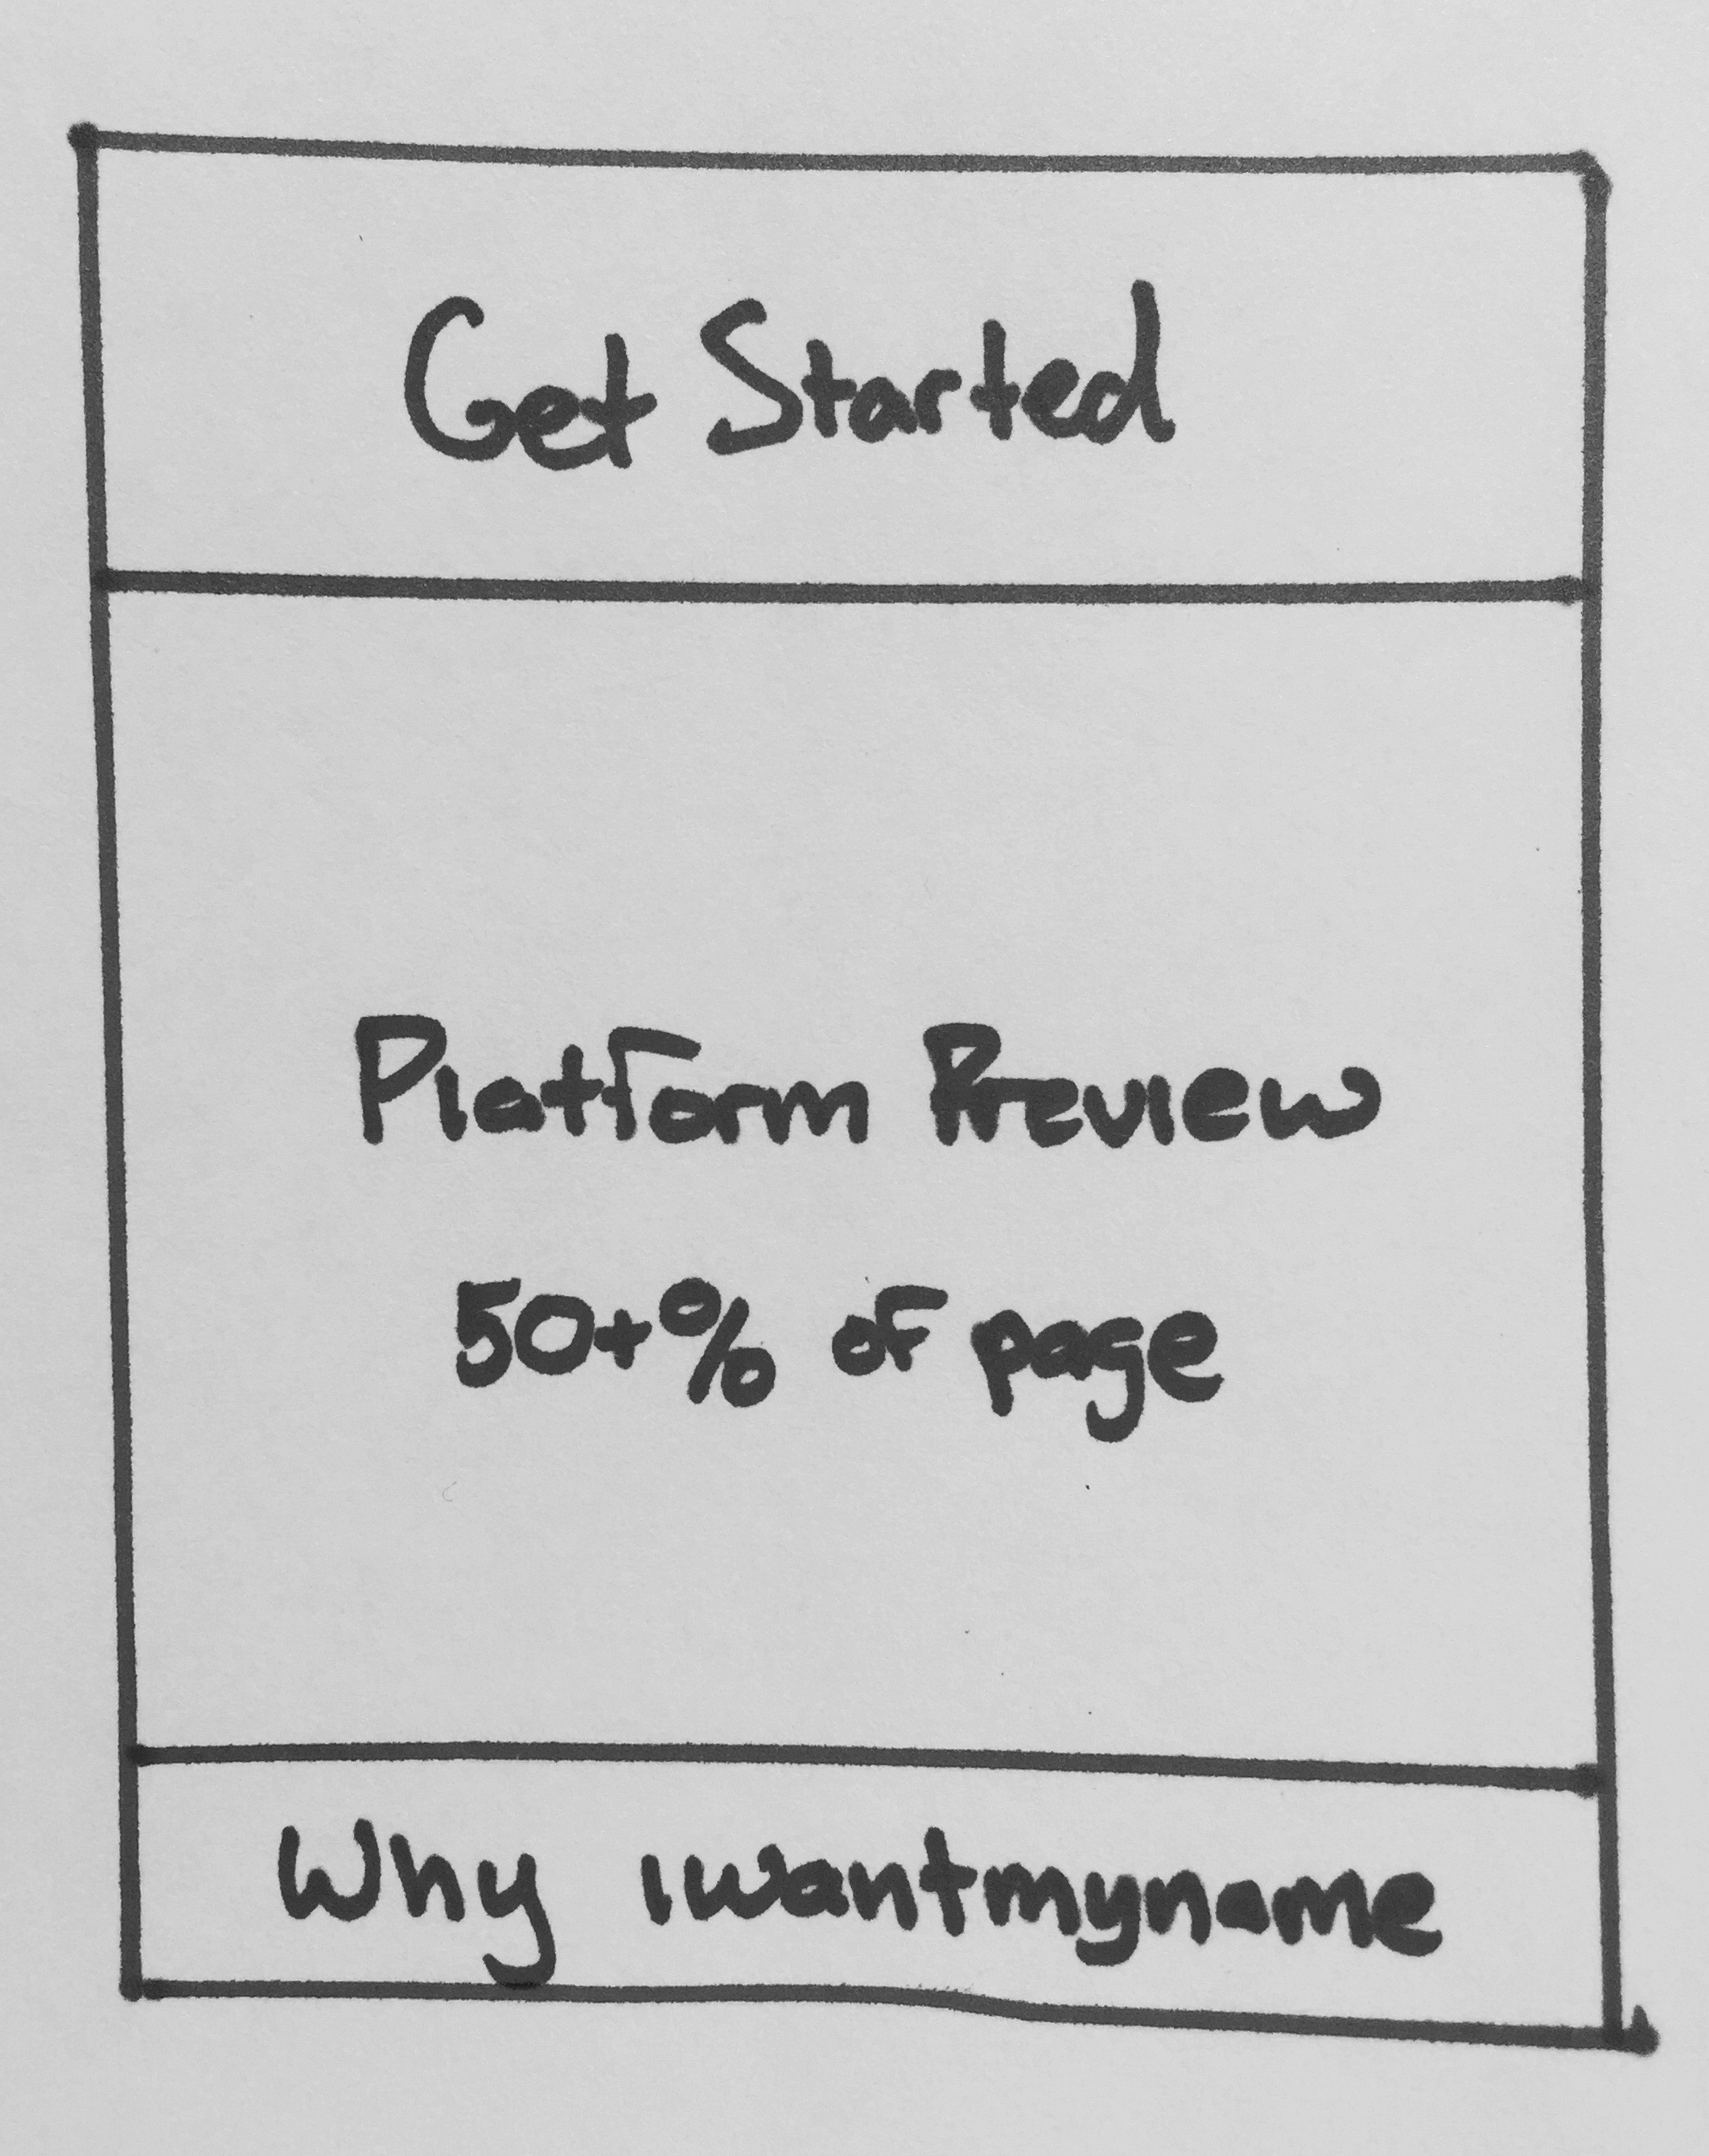 Get Started
Platform Preview
50+% of page
Why iwantmyname